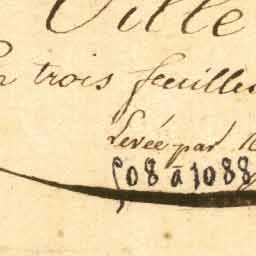 Ville
trois feuilles
Levée par
508 à 1088